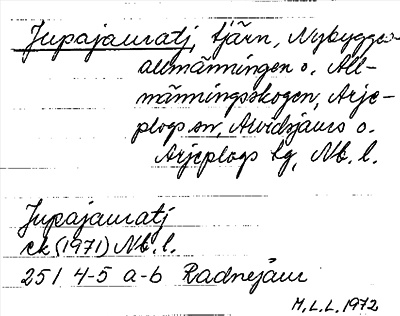 Jupajauratj, tjärn, Nybygges-
allmänningen o. All-
männingsskogen, Arje-
plogs sn, Arvidsjaurs o.
Arjeplogs lg, Nb. l.
Jupajauratj
ek (1971) Nb. l.
25 I 4-5 a-b Radnejaur
M.L.L. 1972